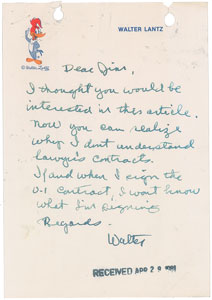 WALTER LANTZ
Dear Jim,
I thought you would be
interested in this article.
Now you can realize
why I don't understand
lawyer's contracts.
If and when I sign the
U-I contract, I won't know
what I'm signing
Regards -
Walter
RECEIVED APR 29